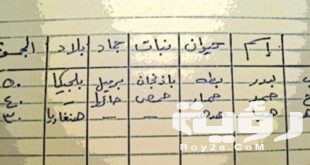 إسم حيوان نبات جماد بلاد المجموع
ب بدر بطة باذنجان برميل بلجيكا ٥٠
ح حمد حمار حمص ٤٠
هنغاريا ٣٠
رؤية
Roy2a.Com